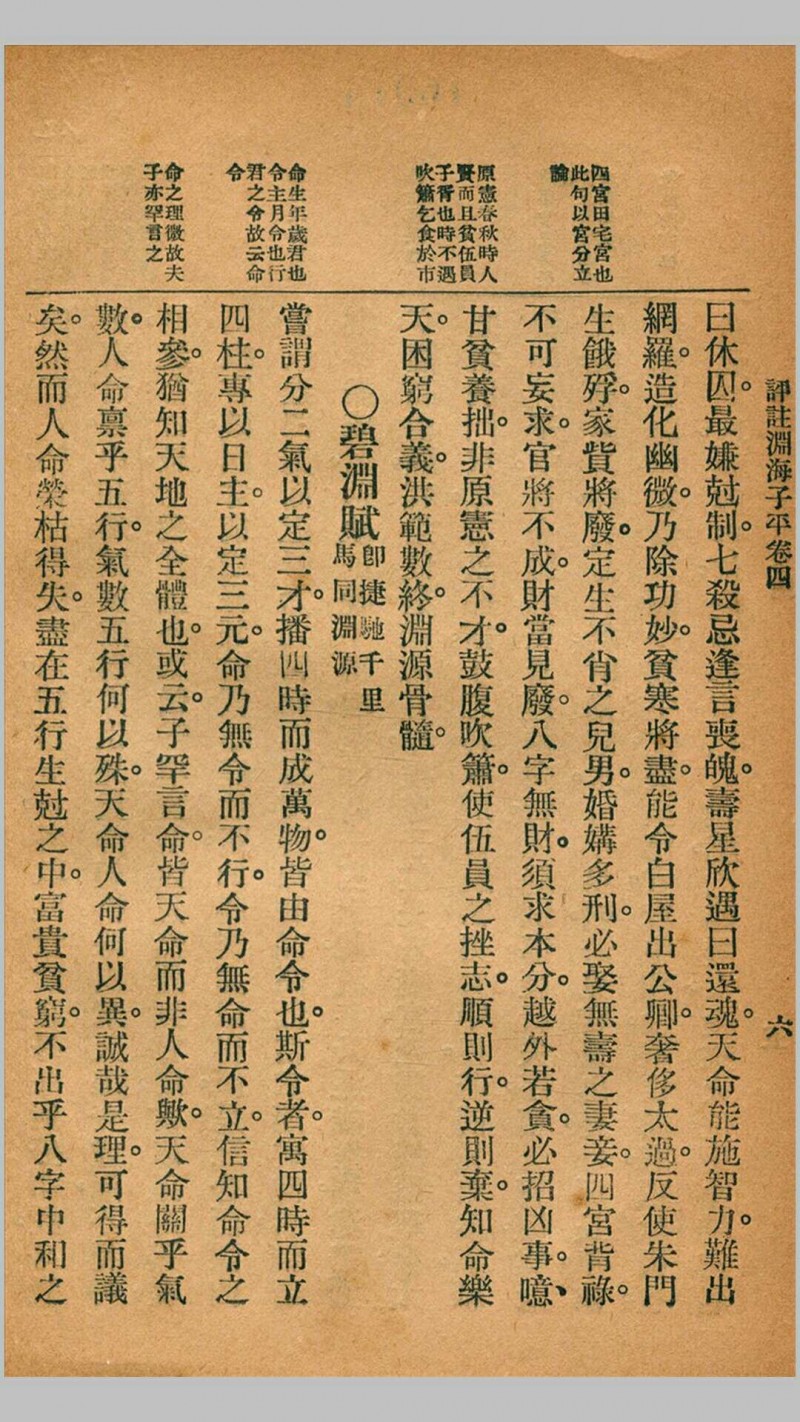 評註淵海子平卷四
六
四宮田宅宮也
此句以宮分立
論
原憲春秋時人
賢而且貧伍員
子胥也時不遇
吹簫乞食於市
命生年歲君也
令主月令也行
君之令故云命
令
命之理微故夫
子亦罕言之
曰休囚。最嫌尅制。七殺忌逢言喪魄。壽星欣遇曰還魂。天命能施智力。難出
網羅。造化幽微。乃除功妙。貧寒將盡。能令白屋出公卿。奢侈太過。反使朱門
生餓殍。家貲將廢。定生不肖之兒男。婚媾多刑。必娶無壽之妻妾。四宮背祿。
不可妄求。官將不成。財當見廢。八字無財。須求本分。越外若貪。必招凶事。噫、
甘貧養拙。非原憲之不才。鼓腹吹簫。使伍員之挫志。順則行。逆則棄。知命樂
天。困窮合義。洪範數終。淵源骨髓。
○碧淵賦
卽捷馳千里
馬同淵源
嘗謂分二氣以定三才。播四時而成萬物。皆由命令也。斯令者。寓四時而立
四柱。專以日主。以定三元。命乃無令而不行。令乃無命而不立。信知命令之
相參。猶知天地之全體也。或云。子罕言命。皆天命而非人命歟。天命關乎氣
數。人命禀乎五行。氣數五行何以殊。天命人命何以異。誠哉是理。可得而議
矣。然而人命榮枯得失。盡在五行生尅之中。富貴貧窮。不出乎八字中和之